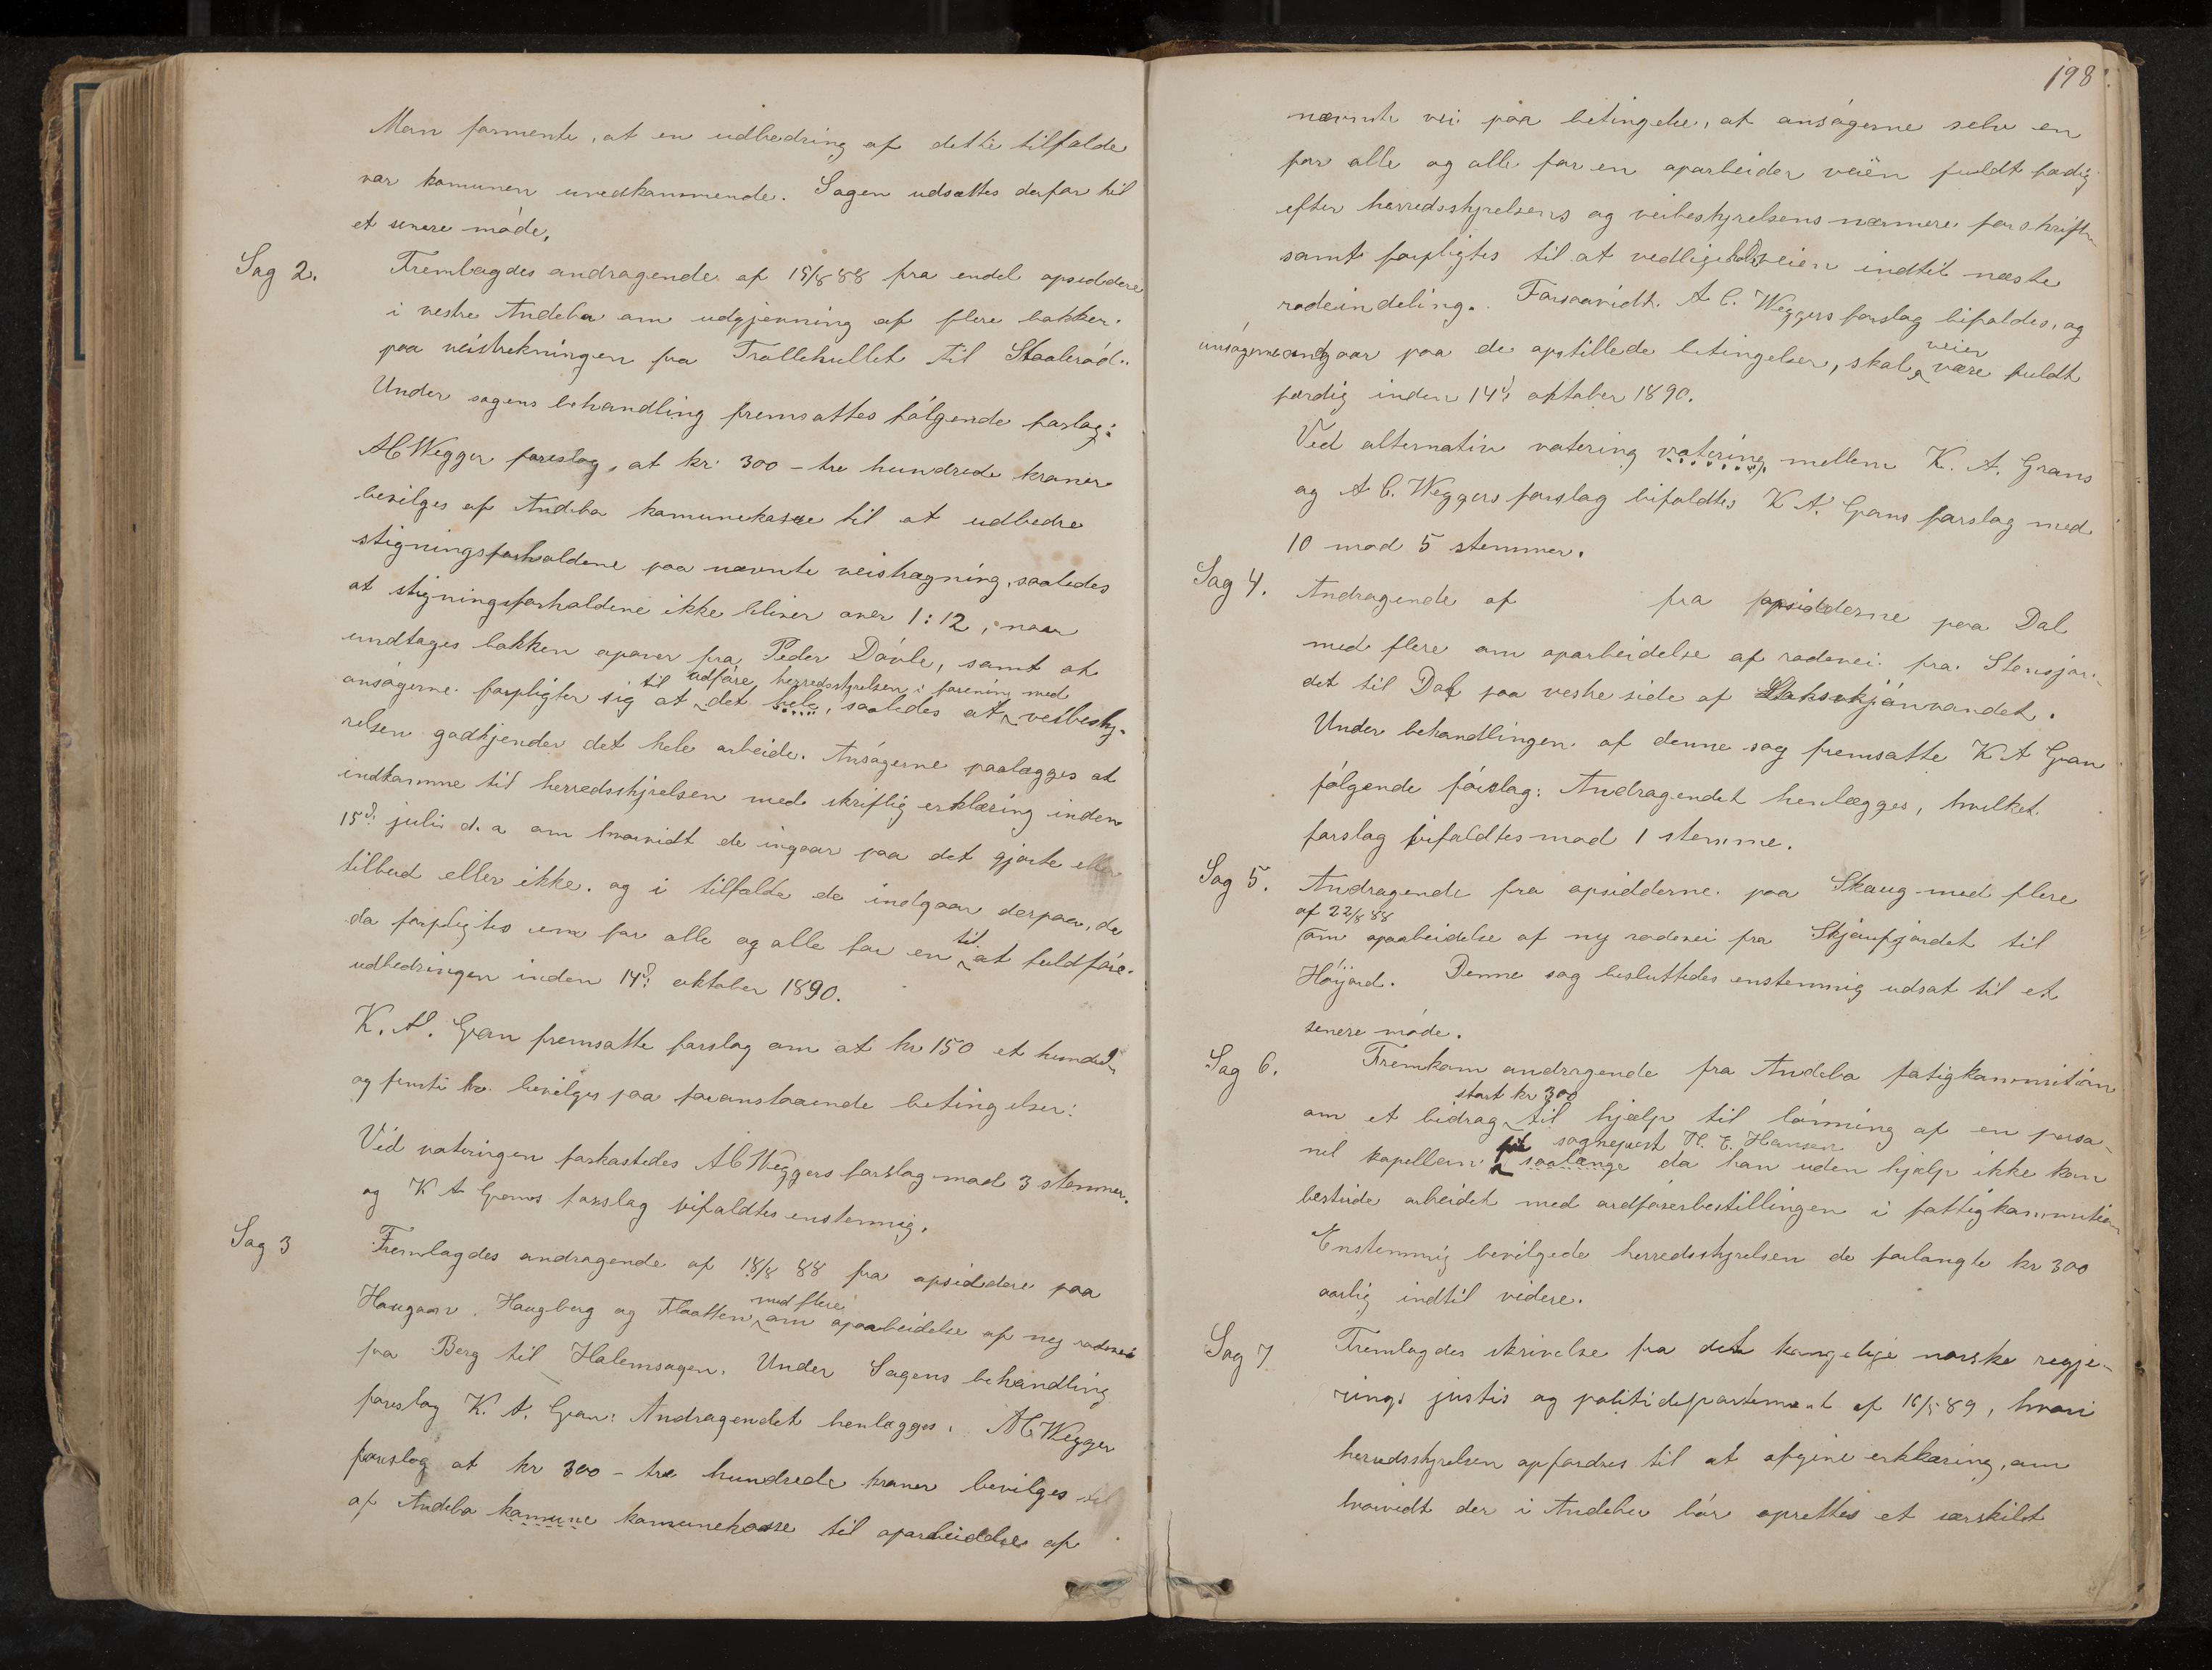 Man formente, at en udbedring af dette tilfælde
var komunen uvedkommende. Sagen udsættes derfor til
et senere møde.
Sag 2. Fremlagdes andragende af 15/8 88 fra endel opsiddere
i vestre Andebu om udgjevning af flere bakker
paa veistrekningen fra Trollehullet til Staalerød.
Under sagens behandling fremsattes følgende forslag:
A C Wegger foreslog, at kr. 300 – tre hundrede kroner
bevilges af Andebu komunekasse til at udbedre
stigningsforholdene paa nævnte veistrægning, saaledes
at stigningsforholdene ikke bliver over 1:12, naar
undtages bakken opover fra Peder Døvle, samt at
til udføre herredsstyrelsen i forening med
ansøgerne forpligter sig at det hele, saaledes at veibesty-
relsen godkjender det hele arbeide. Ansøgerne paalægges at
indkomme til herredsstyrelsen med skriftlig erklæring inden
15de juli d. a om hvorvidt de ingaar paa det gjorte
tilbud eller ikke. og i tilfælde de indgaar derpaa, de
da forpligtes en for alle og alle for en til at fuldføre
udbedringen inden 14de oktober 1890.
K. A. Gran fremsatte forslag om at kr 150 et hundrede
og femti kr. bevilges paa foranstaaende betingelser:
Ved voteringen forkastedes A C Weggers forslag mod 3 stemmer.
og K A Grans forslag bifaldtes enstemmig.
Sag 3 Fremlagdes andragende af 18/8 88 fra opsiddere paa
med flere
Haugaar, Haugberg og Flaatten om oparbeidelse af ny rodevei
fra Berg til Halemsagen. Under Sagens behandling
foreslog K. A. Gran: Andragendet henlægges. A C Wegger
foreslog at kr 300 – tre hundrede kroner bevilges til
af Andebu komune komunekasse til oparbeidelse af
198.
nævnte vei paa betingelse, at ansøgerne selv en
for alle og alle for en oparbeider veien fuldt færdig
efter herredsstyrelsens og veibestyrelsens nærmere forskrifter
samt forpligtes til at vedligeholde veien indtil næste
rodeindeling. Forsaavidt A C. Weggers forslag bifaldes, og
veien
ansøgerne indgaar paa de opstillede betingelser, skal være fuldt
færdig inden 14de oktober 1890.
Ved alternativ votering votering mellem K. A. Grans
og A C. Weggers forslag bifaldtes K A. Grans forslag med
10 mod 5 stemmer.
Sag 4. Andragende af fra opsidderne paa Dal
med flere om oparbeidelse af rodevei fra Stensjor-
det til Dal paa vestre side af
Under behandlingen af denne sag fremsatte K A Gran
følgende forslag: Andragendet henlægges, hvilket
forslag bifaldtes mod 1 stemme.
Sag 5. Andragende fra opsidderne paa Skaug med flere
af 22/8 88
om oparbeidelse af ny rodevei fra Skjaufjordet til
Høijord. Denne sag besluttedes enstemmig udsat til et
senere møde.
Sag 6. Fremkom andragende fra Andebu fatigkommition
stort kr 300
om et bidrag til hjælp til lønning af en perso-
sogneprest H. E. Hansen
nel kapellan saalænge da han uden hjælp ikke kan
bestride arbeidet med ordførerbestillingen i fattigkommition
Enstemmig bevilgede herredsstyrelsen de forlangte kr 300
aarlig indtil videre.
Sag 7 Fremlagdes skrivelse fra det kongelige norske regje-
rings justis og politidepartement af 16/5 89, hvori
herredsstyrelsen opfordres til at afgive erklæring, om
hvorvidt der i Andebu bør oprettes et særskilt